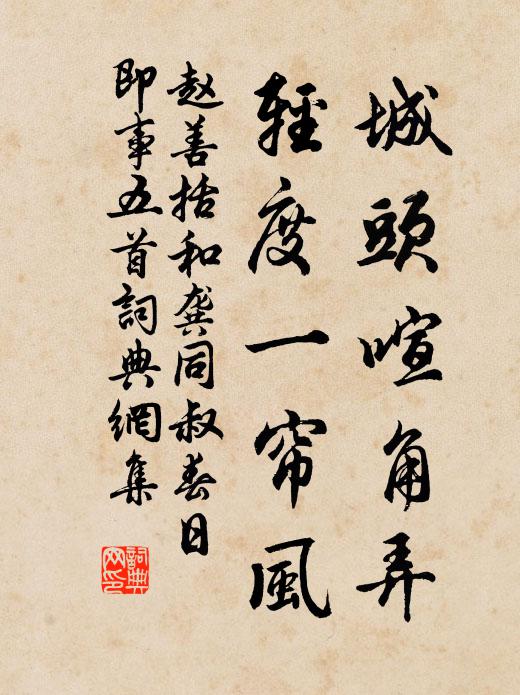 城頭喧角弄
輕度一帘風
赵善括和龔同叔春日
即事五首詞典網集
詞典
网印